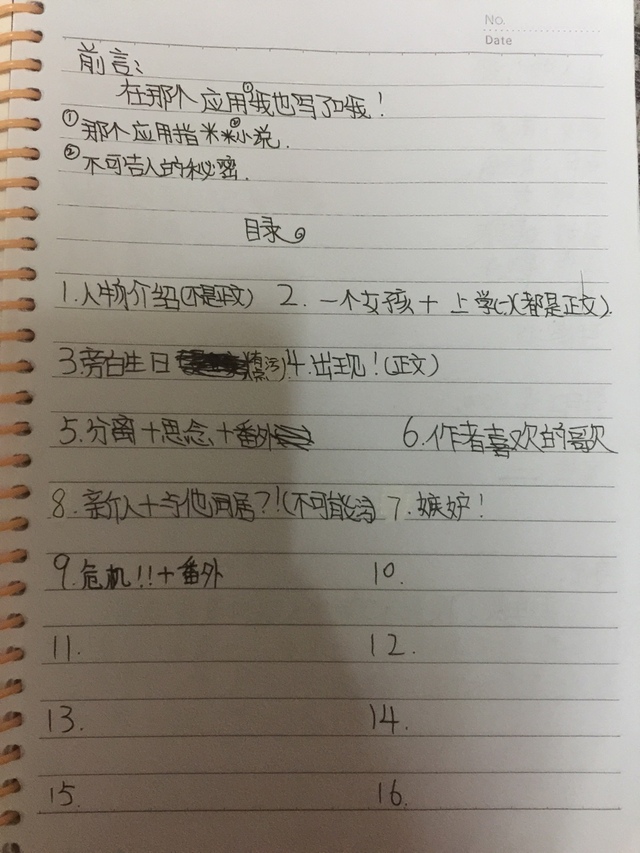 No.
Date
前言:
在那个应用①我也写了②哦!
①那个应用指米米小说.
②不可告人的秘密.
目录
1.人物介绍(不是正文) 2.一个女孩+上学(一)(都是正文).
3.旁白生日(有点污) 4.出现!(正文)
5.分离+思念+番外 6.作者喜欢的歌
8.新人+与他同居?!(不可能滴 7.嫉妒!
9.危机!!+番外 10.
11. 12.
13. 14.
15. 16.